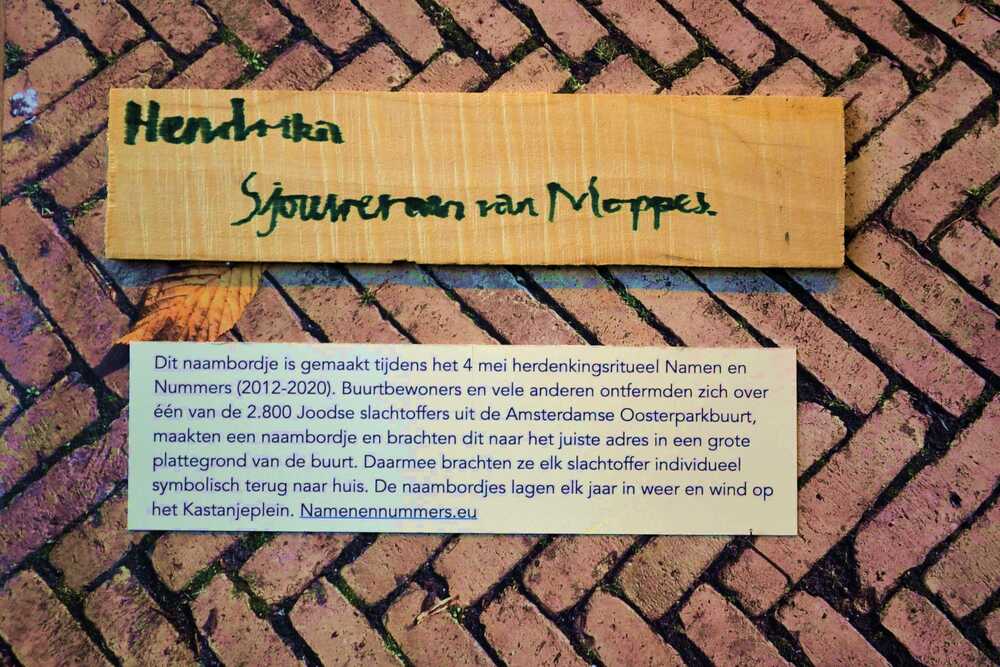 Hendrika
Sjouwerman van Moppes.
Dit naambordje is gemaakt tijdens het 4 mei herdenkingsritueel Namen en
Nummers (2012-2020). Buurtbewoners en vele anderen ontfermden zich over
één van de 2.800 Joodse slachtoffers uit de Amsterdamse Oosterparkbuurt,
maakten een naambordje en brachten dit naar het juiste adres in een grote
plattegrond van de buurt. Daarmee brachten ze elk slachtoffer individueel
symbolisch terug naar huis. De naambordjes lagen elk jaar in weer en wind op
het Kastanjeplein. Namenennummers.eu